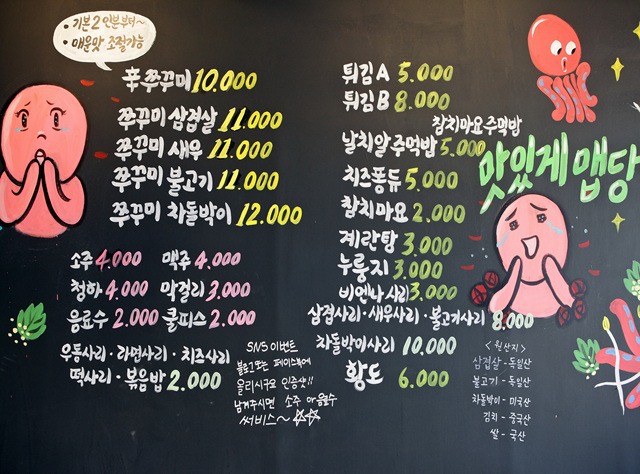 • 기본 2인분부터~
• 매운맛 조절가능
辛쭈꾸미 10.000
쭈꾸미 삼겹살 11.000
쭈꾸미 새우 11.000
쭈꾸미 불고기 11.000
쭈꾸미 차돌박이 12.000
소주 4.000 맥주 4.000
청하 4.000 막걸리 3.000
음료수 2.000 쿨피스 2.000
우동사리 · 라면사리 · 치즈사리
떡사리 · 볶음밥 2.000
SNS 이벤트
블로그또는 페이스북에
올리시구요 인증샷!!
남겨주시면 소주 아 음료수
써비스~ ☆☆
튀김A 5.000
튀김B 8.000
참치마요주먹밥
날치알주먹밥 5.000
치즈퐁듀 5.000
참치마요 2.000
계란탕 3.000
누룽지 3.000
비엔나 사리 3.000
삼겹사리 · 새우사리 · 불고기사리 8.000
차돌박이사리 10.000
황도 6.000
맛있게 맵당
< 원산지 >
삼겹살 - 독일산
불고기 - 독일산
차돌박이 - 미국산
김치 - 중국산
쌀 - 국산